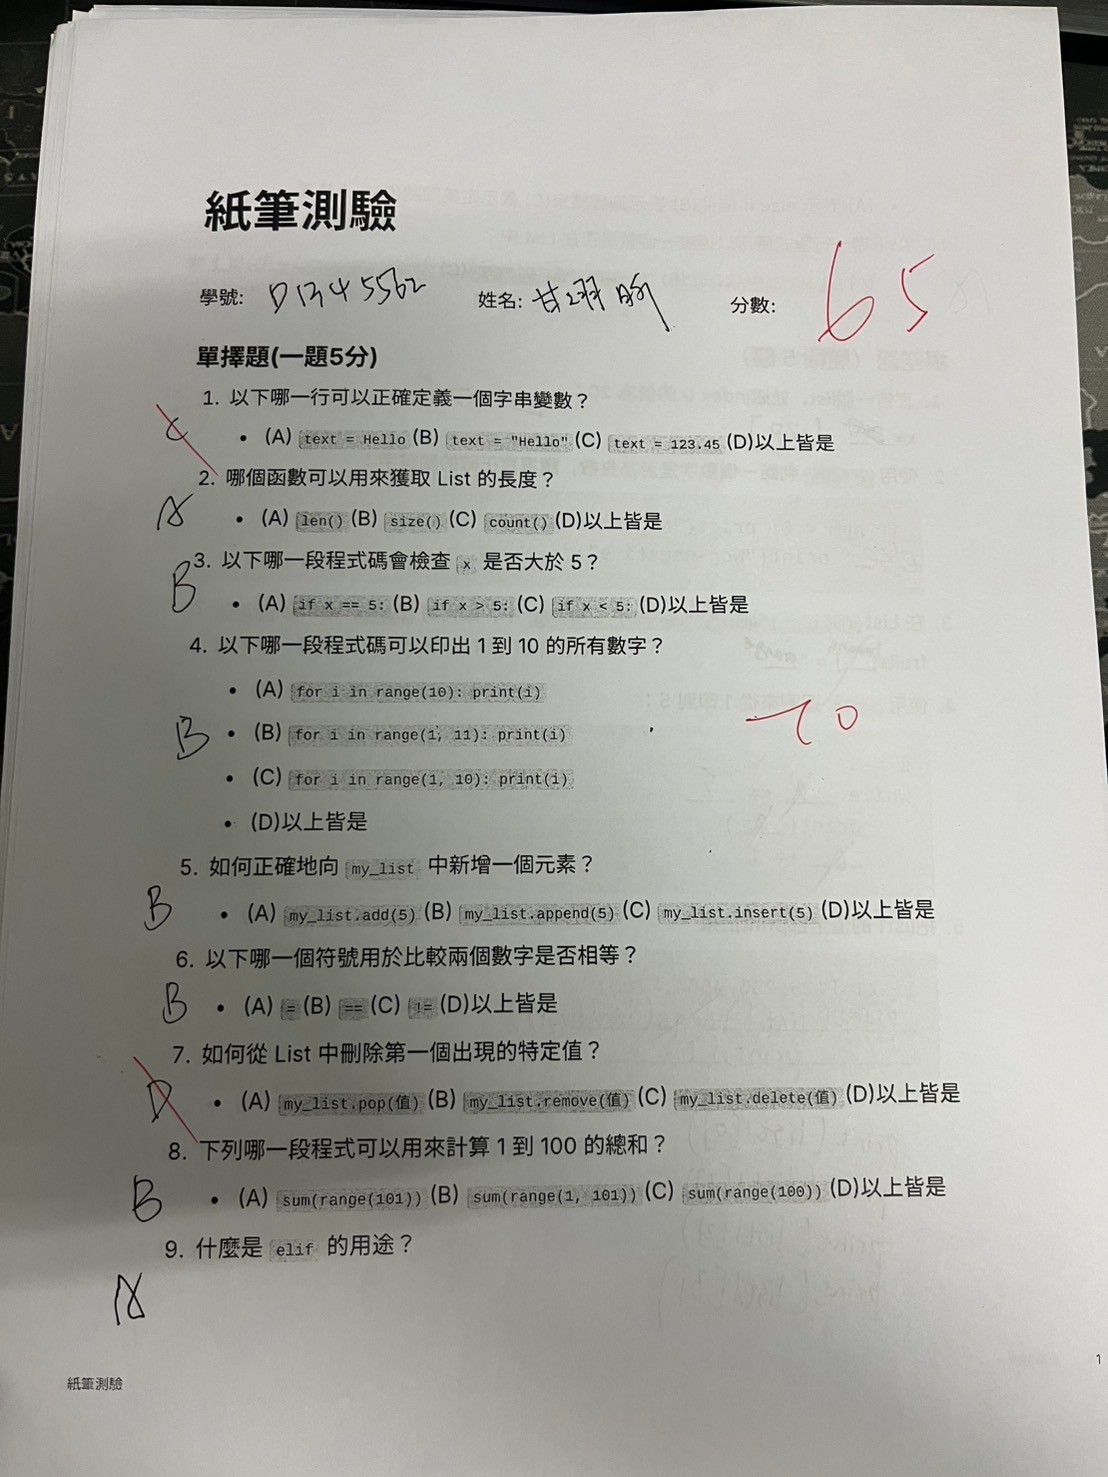 紙筆測驗
學號: D1345562 姓名: 甘 分數: 65
單擇題(一題5分)
1. 以下哪一行可以正確定義一個字串變數？
C • (A) text = Hello (B) text = "Hello" (C) text = 123.45 (D)以上皆是
2. 哪個函數可以用來獲取 List 的長度？
A • (A) len() (B) size() (C) count() (D)以上皆是
3. 以下哪一段程式碼會檢查 x 是否大於 5？
B • (A) if x == 5: (B) if x > 5: (C) if x < 5: (D)以上皆是
4. 以下哪一段程式碼可以印出 1 到 10 的所有數字？
• (A) for i in range(10): print(i)
B • (B) for i in range(1, 11): print(i)
• (C) for i in range(1, 10): print(i)
• (D)以上皆是
5. 如何正確地向 my_list 中新增一個元素？
B • (A) my_list.add(5) (B) my_list.append(5) (C) my_list.insert(5) (D)以上皆是
6. 以下哪一個符號用於比較兩個數字是否相等？
B • (A) = (B) == (C) != (D)以上皆是
7. 如何從 List 中刪除第一個出現的特定值？
D • (A) my_list.pop(值) (B) my_list.remove(值) (C) my_list.delete(值) (D)以上皆是
8. 下列哪一段程式可以用來計算 1 到 100 的總和？
B • (A) sum(range(101)) (B) sum(range(1, 101)) (C) sum(range(100)) (D)以上皆是
9. 什麼是 elif 的用途？
A
紙筆測驗
1